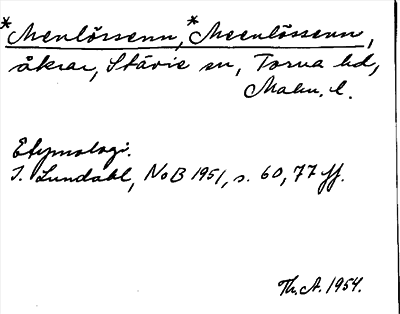 *Menlössenn, *Meenlössenn,
åkrar, Stävie sn, Torna hd,
Malm. l.
Etymologi.
I. Lundahl, NoB 1951, s. 60, 77 ff.
Th. A. 1954.